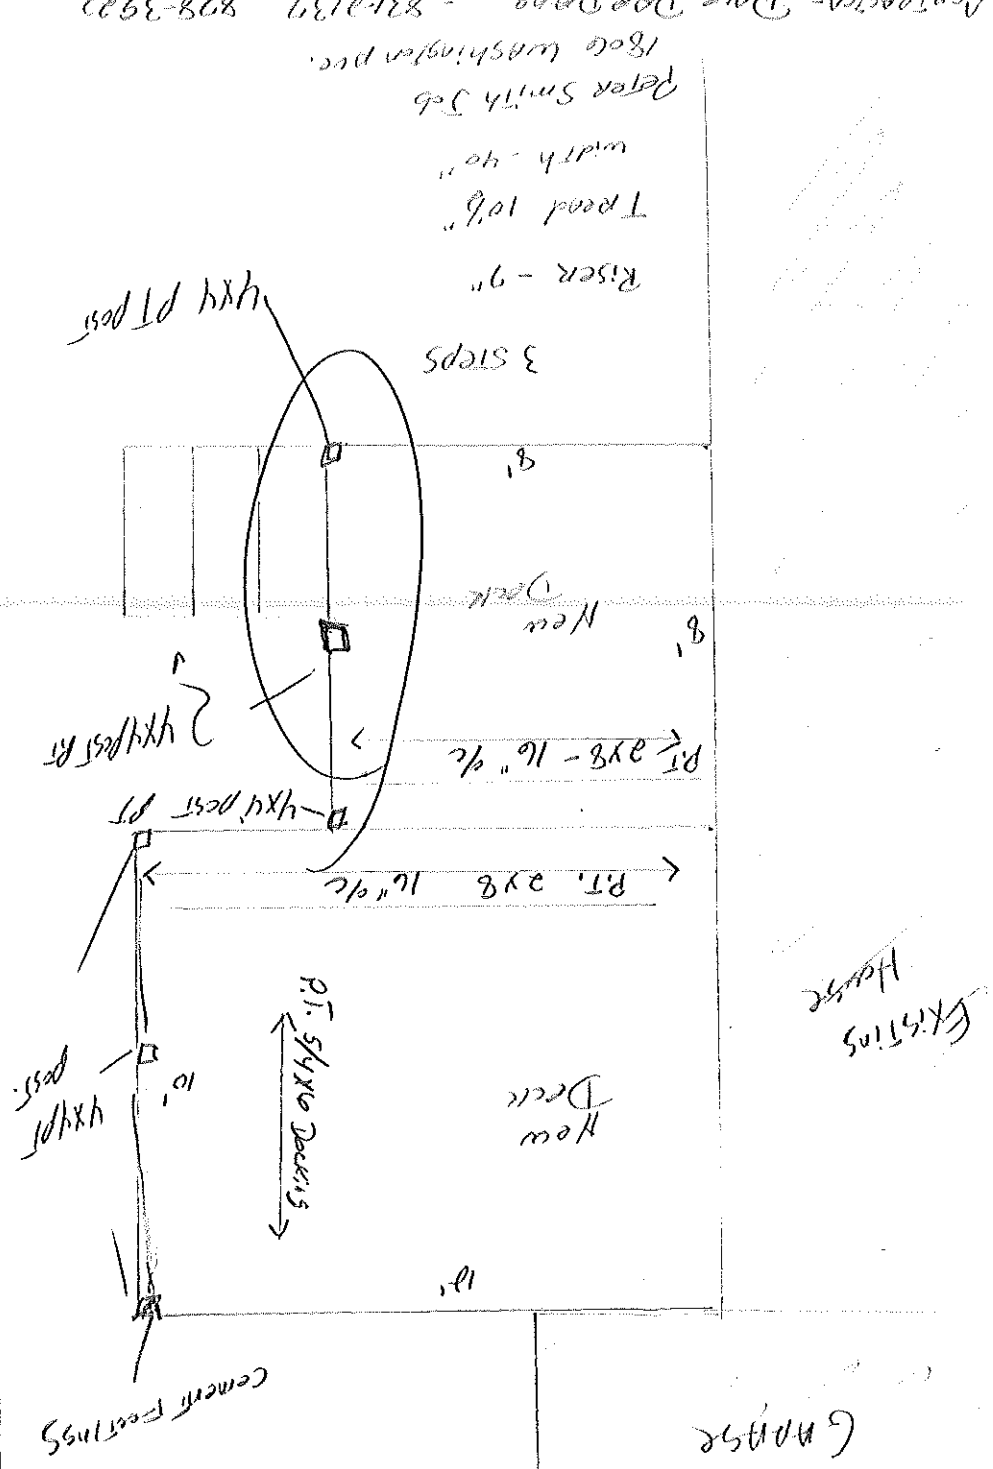 GARAGE
Cement Footings
12'
New
Deck
P.T. 5/4x6 Decking
10'
4x4 PT
post.
Existing
House
P.T. 2x8 16" o/c
4x4 post PT
P.T. 2x8 - 16" o/c
4x4 Post PT
8'
New
Deck
8'
4x4 PT post
3 Steps
Riser - 7"
Tread 10 1/2"
width - 40"
Peter Smith Job
1806 Washington Ave.
Contractor - Dave